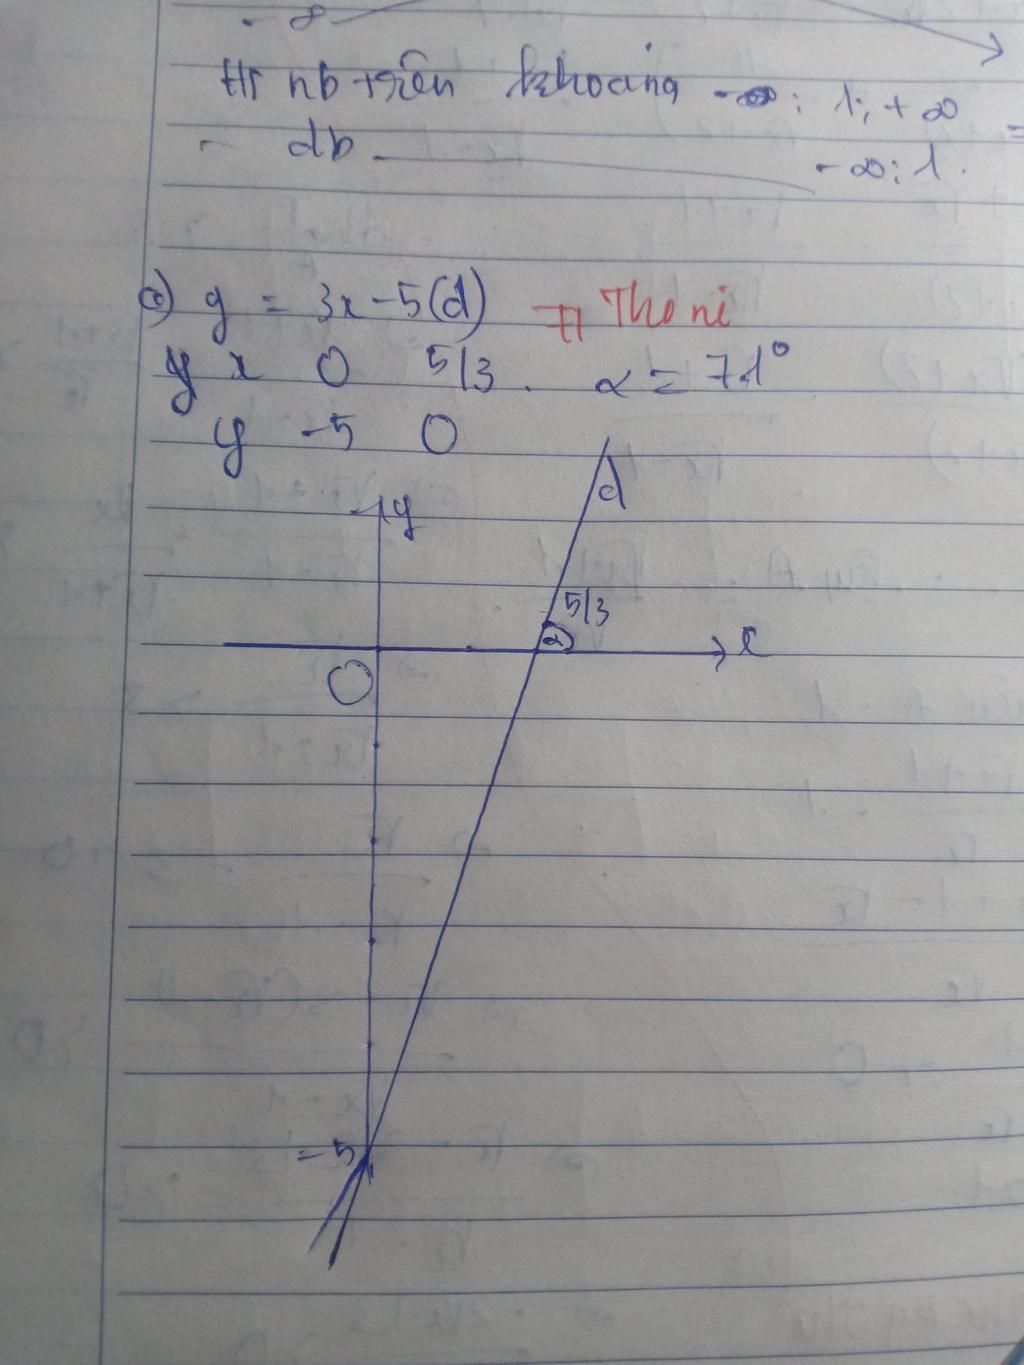 - ∞
Hs nb trên khoảng -∞; 1; +∞
- db - -∞; 1.
c) y = 3x - 5 (d)
x 0 5/3. α = 71°
y -5 0
y
d
5/3
α
x
O
-5